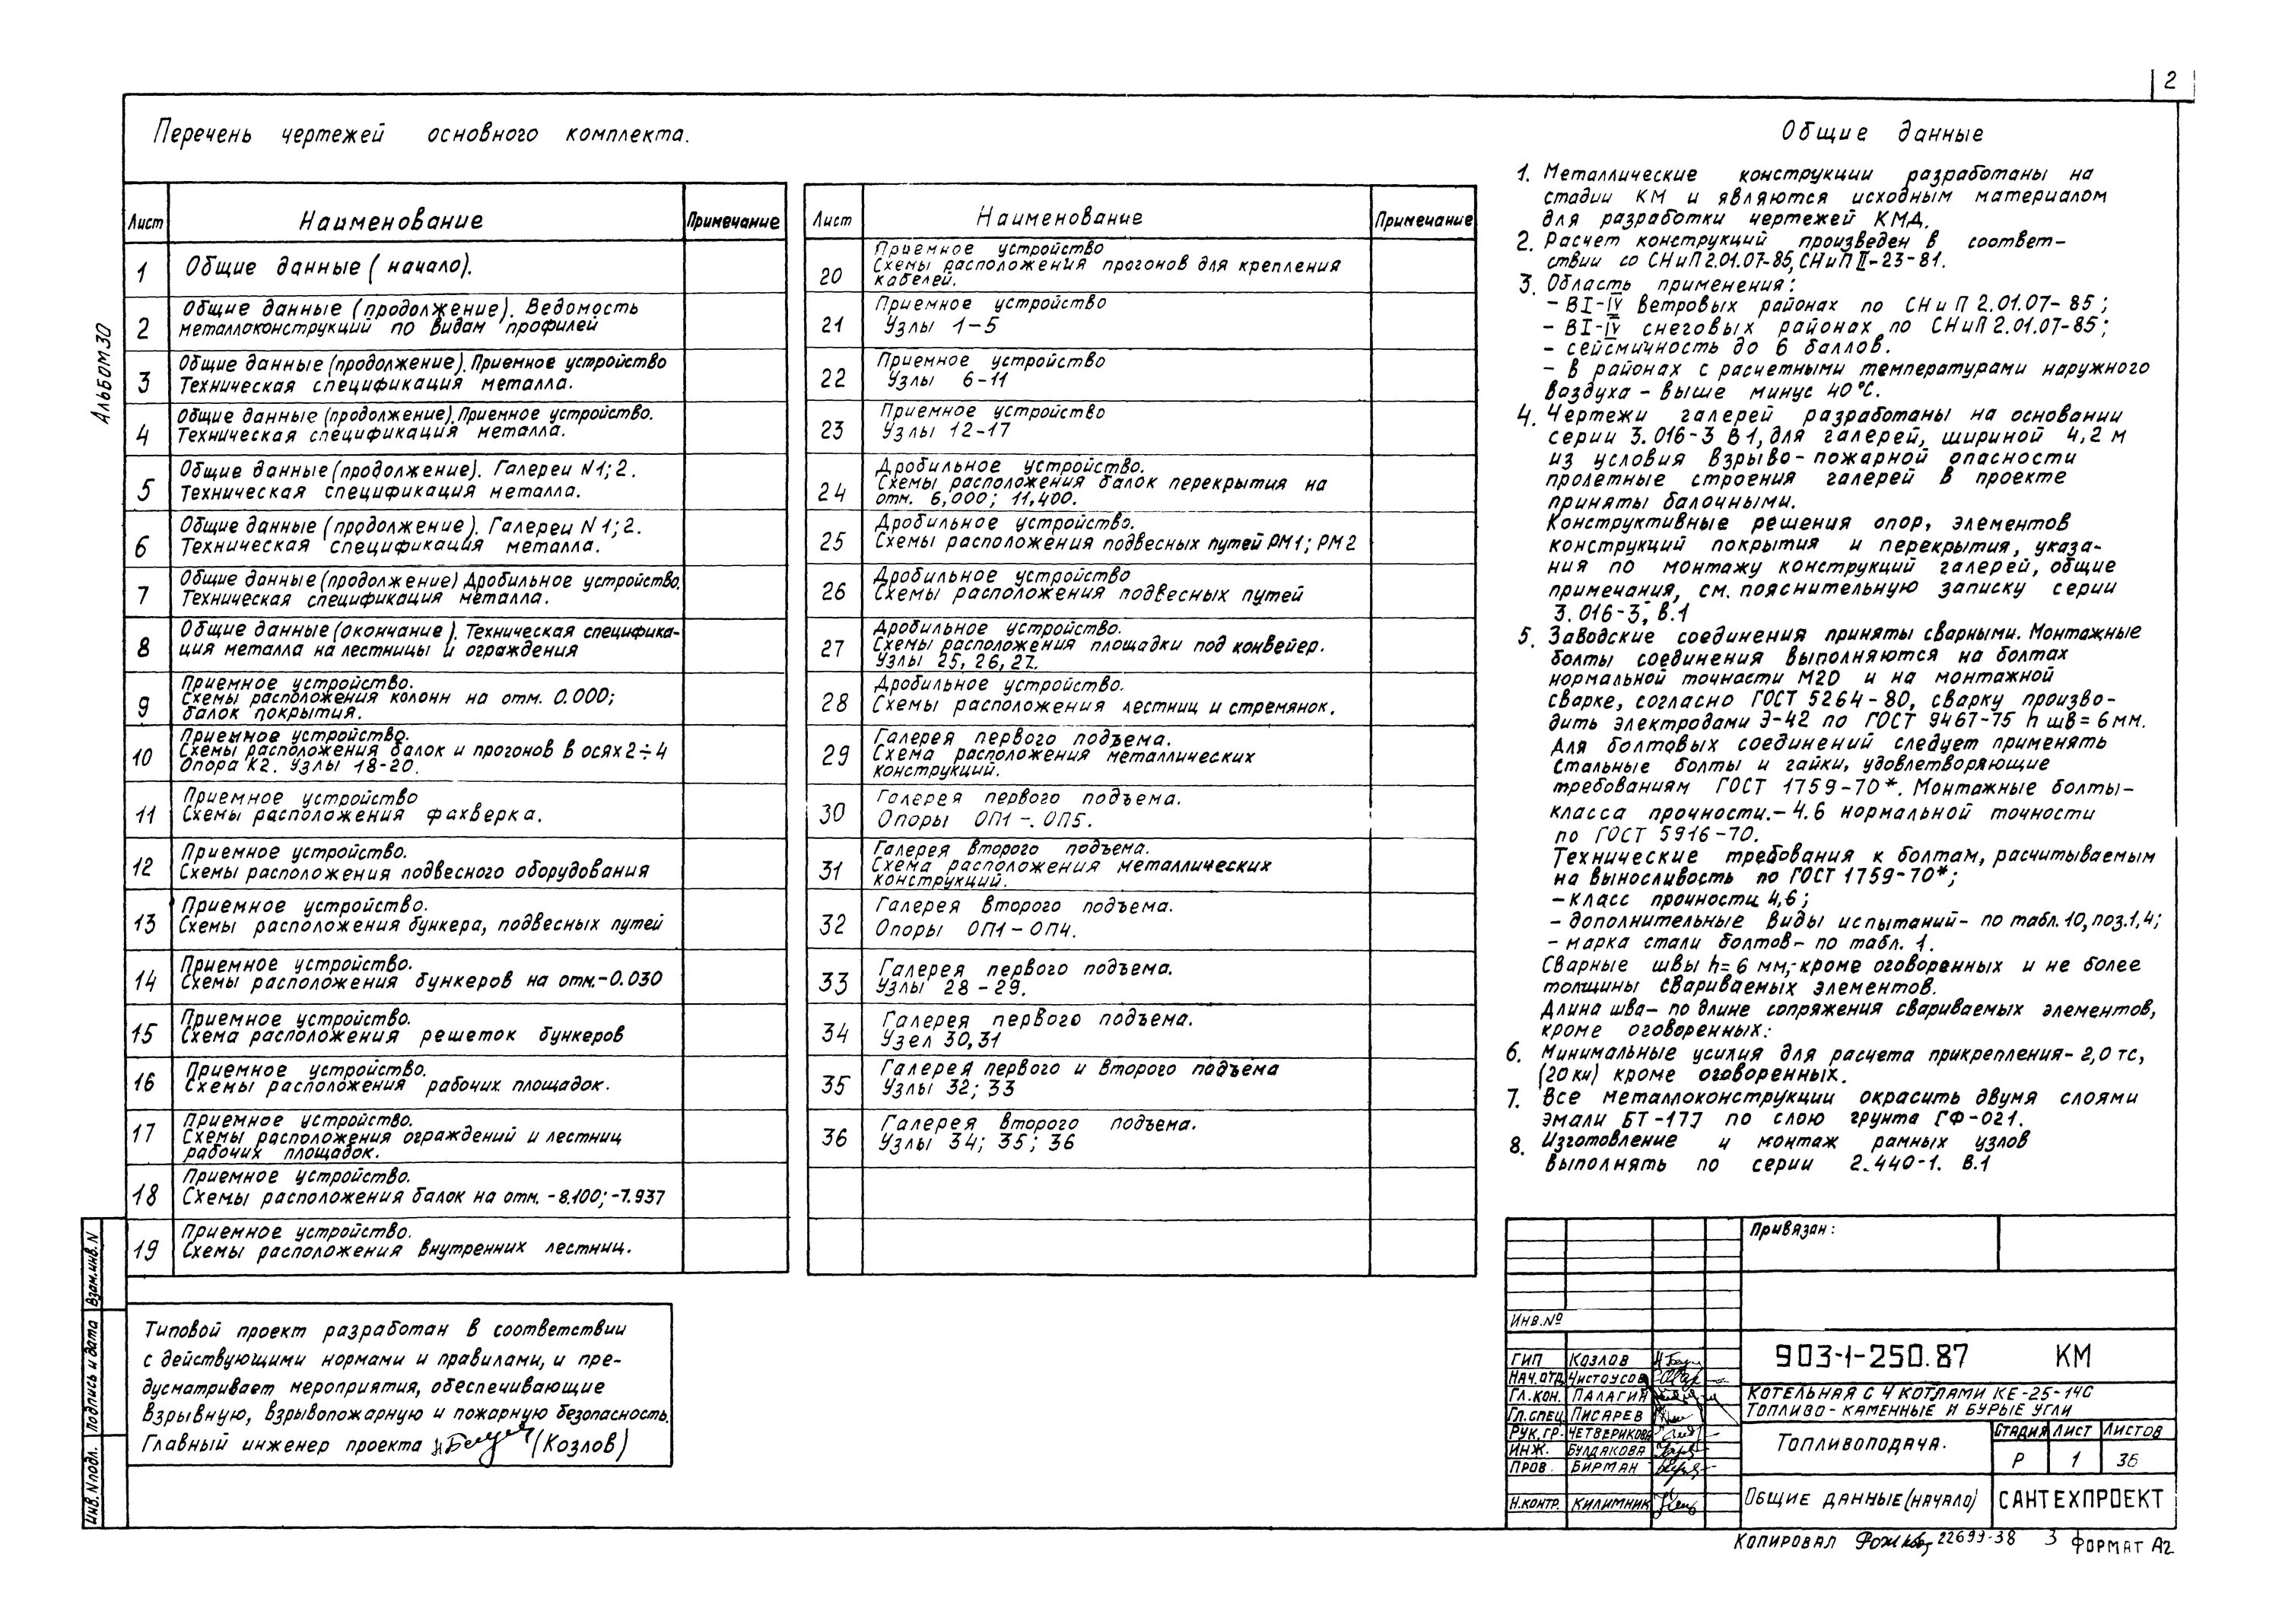 2
Перечень чертежей основного комплекта.
Лист Наименование Примечание
1 Общие данные (начало).
2 Общие данные (продолжение). Ведомость
металлоконструкций по видам профилей
3 Общие данные (продолжение). Приемное устройство
Техническая спецификация металла.
4 Общие данные (продолжение). Приемное устройство.
Техническая спецификация металла.
5 Общие данные (продолжение). Галереи N1; 2.
Техническая спецификация металла.
6 Общие данные (продолжение). Галереи N1; 2.
Техническая спецификация металла.
7 Общие данные (продолжение) Дробильное устройство.
Техническая спецификация металла.
8 Общие данные (окончание). Техническая специфика-
ция металла на лестницы и ограждения
9 Приемное устройство.
Схемы расположения колонн на отм. 0.000;
балок покрытия.
10 Приемное устройство.
Схемы расположения балок и прогонов в осях 2÷4
Опора К2. Узлы 18-20.
11 Приемное устройство
Схемы расположения фахверка.
12 Приемное устройство.
Схемы расположения подвесного оборудования
13 Приемное устройство.
Схемы расположения бункера, подвесных путей
14 Приемное устройство.
Схемы расположения бункеров на отм.-0.030
15 Приемное устройство.
Схема расположения решеток бункеров
16 Приемное устройство.
Схемы расположения рабочих площадок.
17 Приемное устройство.
Схемы расположения ограждений и лестниц
рабочих площадок.
18 Приемное устройство.
Схемы расположения балок на отм. -8.100; -7.937
19 Приемное устройство.
Схемы расположения внутренних лестниц.
Лист Наименование Примечание
20 Приемное устройство
Схемы расположения прогонов для крепления
кабелей.
21 Приемное устройство
Узлы 1-5
22 Приемное устройство
Узлы 6-11
23 Приемное устройство
Узлы 12-17
24 Дробильное устройство.
Схемы расположения балок перекрытия на
отм. 6,000; 11,400.
25 Дробильное устройство.
Схемы расположения подвесных путей РМ1; РМ2
26 Дробильное устройство
Схемы расположения подвесных путей
27 Дробильное устройство.
Схемы расположения площадки под конвейер.
Узлы 25, 26, 27.
28 Дробильное устройство.
Схемы расположения лестниц и стремянок.
29 Галерея первого подъема.
Схема расположения металлических
конструкций.
30 Галерея первого подъема.
Опоры ОП1-. ОП5.
31 Галерея второго подъема.
Схема расположения металлических
конструкций.
32 Галерея второго подъема.
Опоры ОП1-ОП4.
33 Галерея первого подъема.
Узлы 28-29.
34 Галерея первого подъема.
Узел 30,31
35 Галерея первого и второго подъема
Узлы 32; 33
36 Галерея второго подъема.
Узлы 34; 35; 36
Общие данные
1. Металлические конструкции разработаны на
стадии КМ и являются исходным материалом
для разработки чертежей КМД.
2. Расчет конструкций произведен в соответ-
ствии со СНиП 2.01.07-85, СНиП II-23-81.
3. Область применения:
- В I-IV ветровых районах по СНиП 2.01.07-85;
- В I-IV снеговых районах по СНиП 2.01.07-85;
- сейсмичность до 6 баллов.
- в районах с расчетными температурами наружного
воздуха - выше минус 40°С.
4. Чертежи галерей разработаны на основании
серии 3.016-3 В1, для галерей, шириной 4,2 м
из условия взрыво-пожарной опасности
пролетные строения галерей в проекте
приняты балочными.
Конструктивные решения опор, элементов
конструкций покрытия и перекрытия, указа-
ния по монтажу конструкций галерей, общие
примечания, см. пояснительную записку серии
3.016-3, в.1
5. Заводские соединения приняты сварными. Монтажные
болты соединения выполняются на болтах
нормальной точности М20 и на монтажной
сварке, согласно ГОСТ 5264-80, сварку произво-
дить электродами Э-42 по ГОСТ 9467-75 h шв = 6 мм.
Для болтовых соединений следует применять
стальные болты и гайки, удовлетворяющие
требованиям ГОСТ 1759-70*. Монтажные болты-
класса прочности.- 4.6 нормальной точности
по ГОСТ 5916-70.
Технические требования к болтам, расчитываемым
на выносливость по ГОСТ 1759-70*;
- класс прочности 4,6;
- дополнительные виды испытаний- по табл. 10, поз.1,4;
- марка стали болтов- по табл. 1.
Сварные швы h=6 мм,-кроме оговоренных и не более
толщины свариваемых элементов.
Длина шва- по длине сопряжения свариваемых элементов,
кроме оговоренных.
6. Минимальные усилия для расчета прикрепления- 2,0 тс,
(20 кн) кроме оговоренных.
7. Все металлоконструкции окрасить двумя слоями
эмали БТ-177 по слою грунта ГФ-021.
8. Изготовление и монтаж рамных узлов
выполнять по серии 2.440-1. В.1
Альбом 30
Взам.инв.N
Подпись и дата
Инв.N подл.
Типовой проект разработан в соответствии
с действующими нормами и правилами, и пре-
дусматривает мероприятия, обеспечивающие
взрывную, взрывопожарную и пожарную безопасность.
Главный инженер проекта (Козлов)
Привязан:
Инв.№
903-1-250.87 КМ
ГИП Козлов
Нач.отд Чистоусов
Гл.кон. Палагин
Гл.спец Писарев
Рук.гр. Четверикова
Инж. Булдакова
Пров. Бирман
Н.контр. Килимник
Котельная с 4 котлами КЕ-25-14С
Топливо-каменные и бурые угли
Топливоподача.
Стадия Лист Листов
Р 1 36
Общие данные (начало)
САНТЕХПРОЕКТ
Копировал 22699-38 3 Формат А2